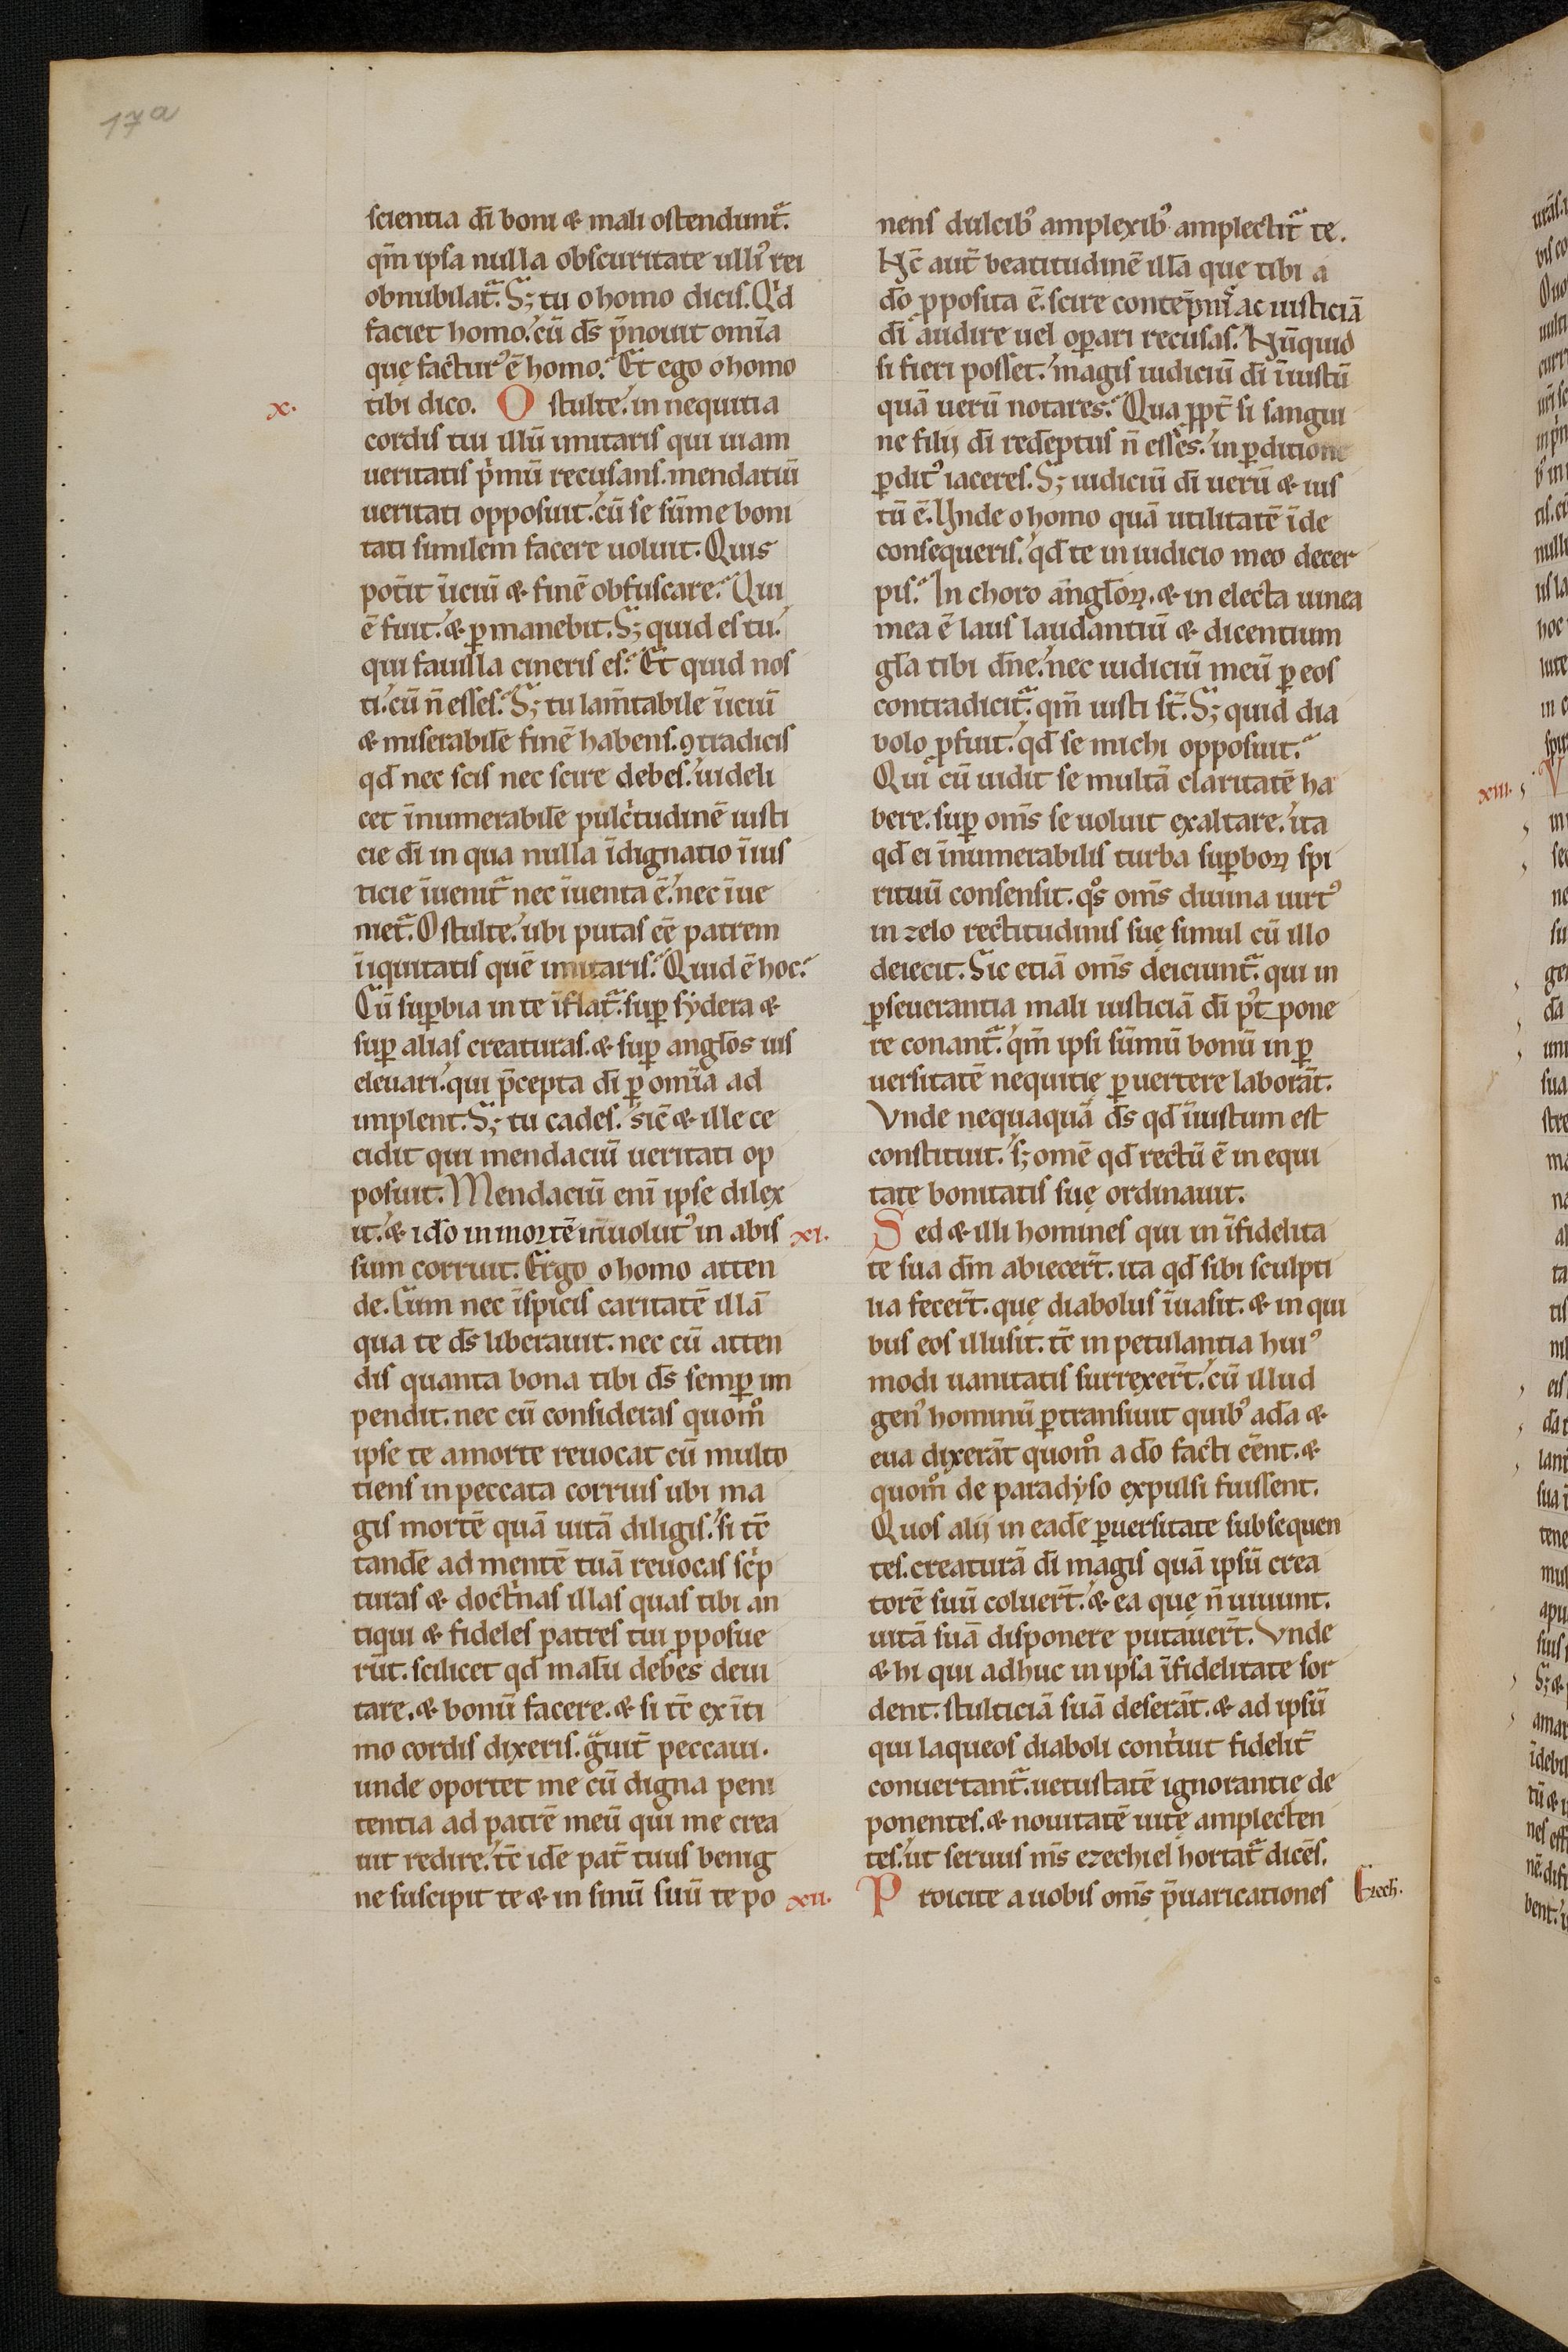 17a
scientia dī boni & mali ostendunt᷑.
qm̄ ipsa nulla obscuritate ulliꝰ rei
obnubilat᷑. S; tu o homo dicis. Qͥd
faciet homo. cū ds̄ p̄nouit om̄ia
quę facturꝰ ē homo. Et ego o homo
x.
tibi dico. O stulte. in nequitia
cordis tui illū imitaris qui uiam
ueritatis pͥmū recusans. mendatiū
ueritati opposuit. cū se sūme boni
tati similem facere uoluit. Quis
pot̄it īiciū & finē obfuscare. Qui
ē fuit. & ꝑmanebit. S; quid es tu.
qui fauilla cineris es. Et quid nos
ti. cū n̄ esses. S; tu lam̄tabile īiciū
& miserabile finē habens. ꝯtradicis
qd̄ nec scis nec scire debes. uideli
cet īnumerabile pulcͥtudinē iusti
cie dī in qua nulla īdignatio īius
ticie īuenit᷑ nec īuenta ē. nec īue
niet᷑. O stulte. ubi putas eē patrem
īiquitatis quē imitaris. Quid ē hoc.
Cū suꝑbia in te īflat᷑. suꝑ sẏdera &
suꝑ alias creaturas. & suꝑ angl̄os uis
eleuari. qui p̄cepta dī ꝑ om̄ia ad
implent. S; tu cades. sic̄ & ille ce
cidit qui mendaciū ueritati op
posuit. Mendaciū enī ipse dilex
it. & id̄o in mortē inuolutꝰ in abis
sum corruit. Ergo o homo atten
de. Cum nec īspicis caritatē illā
qua te ds̄ liberauit. nec cū atten
dis quanta bona tibi ds̄ semꝑ im
pendit. nec cū consideras quom̊
ipse te a morte reuocat cū multo
tiens in peccata corruis ubi ma
gis mortē quā uitā diligis. si tc̄
tandē ad mentē tuā reuocas scͥp
turas & doctͥnas illas quas tibi an
tiqui & fideles patres tui ꝓposue
rūt. scilicet qd̄ malū debes deui
tare. & bonū facere. & si tc̄ ex īti
mo cordis dixeris. gᷓuit̄ peccaui.
unde oportet me cū digna peni
tentia ad patrē meū qui me crea
uit redire. tc̄ idē pat̄ tuus benig
ne suscipit te & in sinū suū te po
nens dulcibꝰ amplexibꝰ amplectit᷑ te.
Nc̄ aut̄ beatitudinē illā que tibi a
dō ꝓposita ē. scire contēpnis ac iusticiā
dī audire uel oꝑari recusas. Nūquid
si fieri posset. magis iudiciū dī īiustū
quā uerū notares. Qua ꝓpt̄ si sangui
ne filij dī redēptus n̄ esses. in ꝑditione
ꝑditꝰ iaceres. S; iudiciū dī uerū & ius
tū ē. Unde o homo quā utilitatē īde
consequeris. qd̄ te in iudicio meo decer
pis. In choro angl̄oꝝ. & in electa uinea
mea ē laus laudantiū & dicentium
gl̄a tibi dn̄e. nec iudiciū meū ꝑ eos
contradicit᷑. qm̄ iusti st̄. S; quid dia
bolo ꝓfuit. qd̄ se michi opposuit.
Qui cū uidit se multā claritatē ha
bere. suꝑ om̄s se uoluit exaltare. ita
qd̄ ei īnumerabilis turba suꝑboꝝ spi
rituū consensit. qo̊s om̄s diuina uirtꝰ
in zelo rectitudinis suę simul cū illo
deiecit. Sic etiā om̄s deiciunt᷑. qui in
ꝑseuerantia mali iusticiā dī pꝰt pone
re conant᷑. qm̄ ipsi sūmū bonū in ꝑ
uersitatē nequitię ꝑuertere laborāt.
Vnde nequaquā ds̄ qd̄ īiustum est
constituit. s; omē qd̄ rectū ē in equi
tate bonitatis suę ordinauit.
xi.
Sed & illi homines qui in īfidelita
te sua dm̄ abiecer̄t. ita qd̄ sibi sculpti
lia fecer̄t. quę diabolus īuasit. & in qui
bus eos illusit. tc̄ in petulantia huiꝰ
modi uanitatis surrexer̄t. cū illud
genꝰ hominū ꝑtransiuit quibꝰ adā &
eua dixerāt quom̊ a dō facti eēnt. &
quom̊ de paradẏso expulsi fuissent.
Quos alij in eadē ꝑuersitate subsequen
tes. creaturā dī magis quā ipsū crea
torē suū coluer̄t. & ea quę n̄ uiuunt.
uitā suā disponere putauer̄t. Vnde
& hi qui adhuc in ipsa īfidelitate sor
dent. stulticiā suā deserāt. & ad ipsū
qui laqueos diaboli contͥuit fidelit̄
conuertant᷑. uetustatē ignorantie de
ponentes. & nouitatē uitę amplecten
tes. ut seruus m̄s ezechiel hortat᷑ dicēs.
xii.
Proicite a uobis om̄s p̄uaricationes
Ezech̄.
xiii.